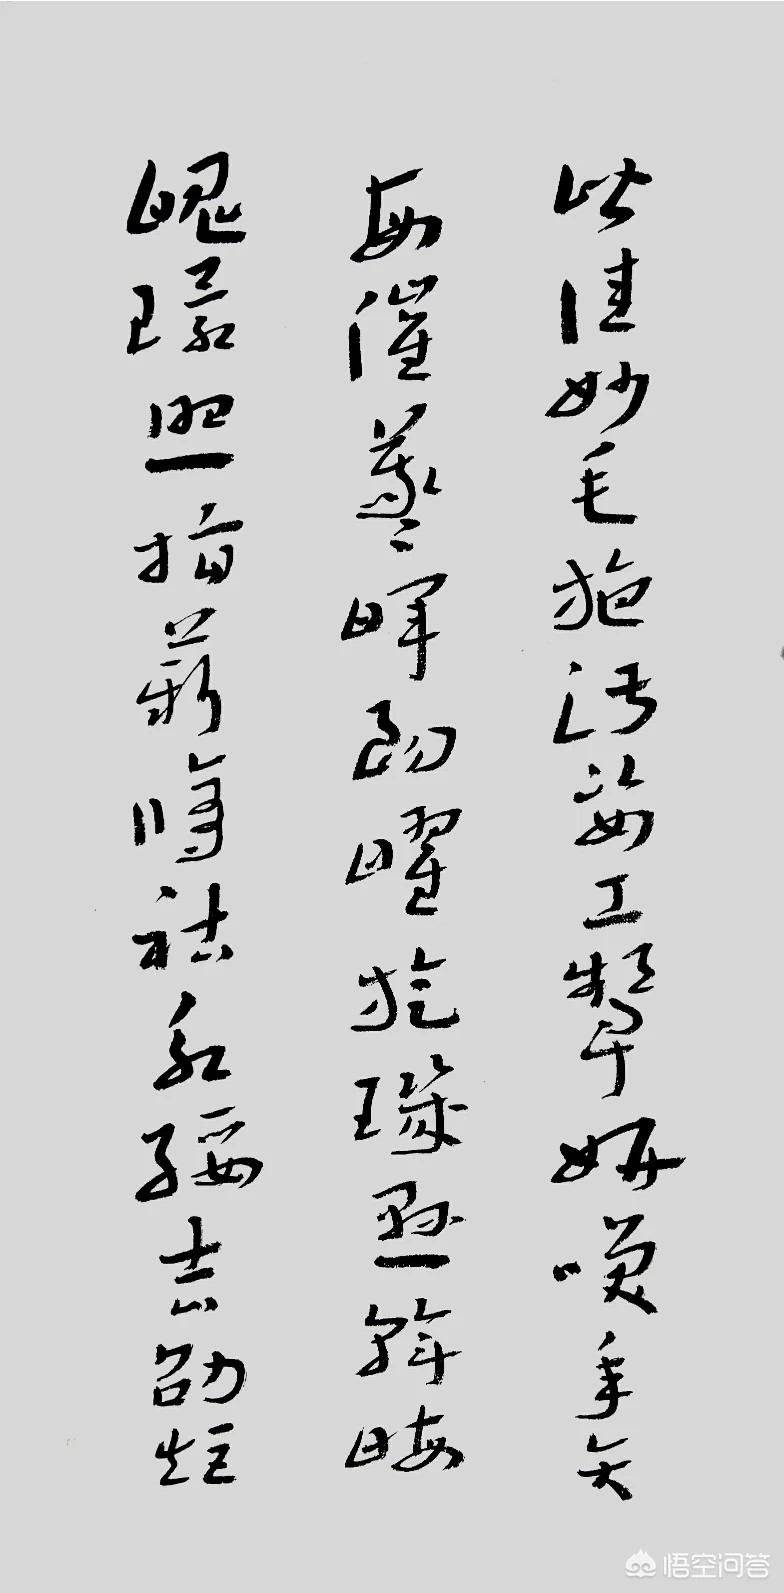 皆佳妙毛施淑姿工颦妍笑年矢
每催羲晖朗曜旋玑悬斡晦
魄环照指薪修祜永绥吉劭矩
悟空问答